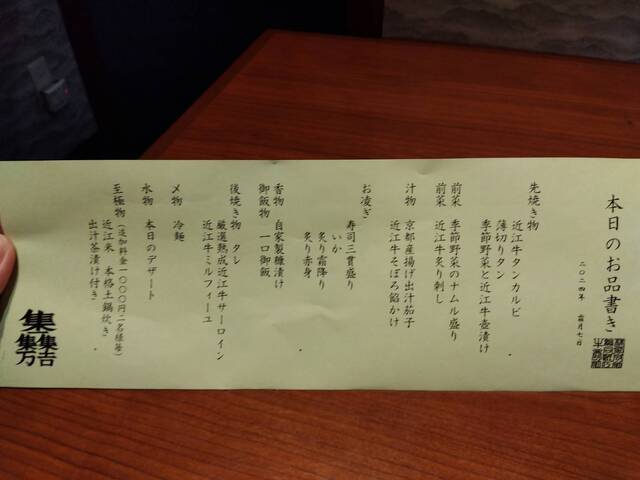 本日のお品書き
二〇二四年 霜月七日
先焼き物
近江牛タンカルビ
薄切りタン
季節野菜と近江牛壺漬け
前菜 季節野菜のナムル盛り
前菜 近江牛炙り刺し
汁物 京都産揚げ出汁茄子
近江牛そぼろ餡かけ
お凌ぎ
寿司三貫盛り
いか
炙り霜降り
炙り赤身
香物 自家製糠漬け
御飯物 一口御飯
後焼き物 タレ
厳選熟成近江牛サーロイン
近江牛ミルフィーユ
〆物 冷麺
水物 本日のデザート
至極物 (追加料金一〇〇〇円二名様毎)
近江米 本格土鍋炊き
出汁茶漬け付き
集集吉
集万